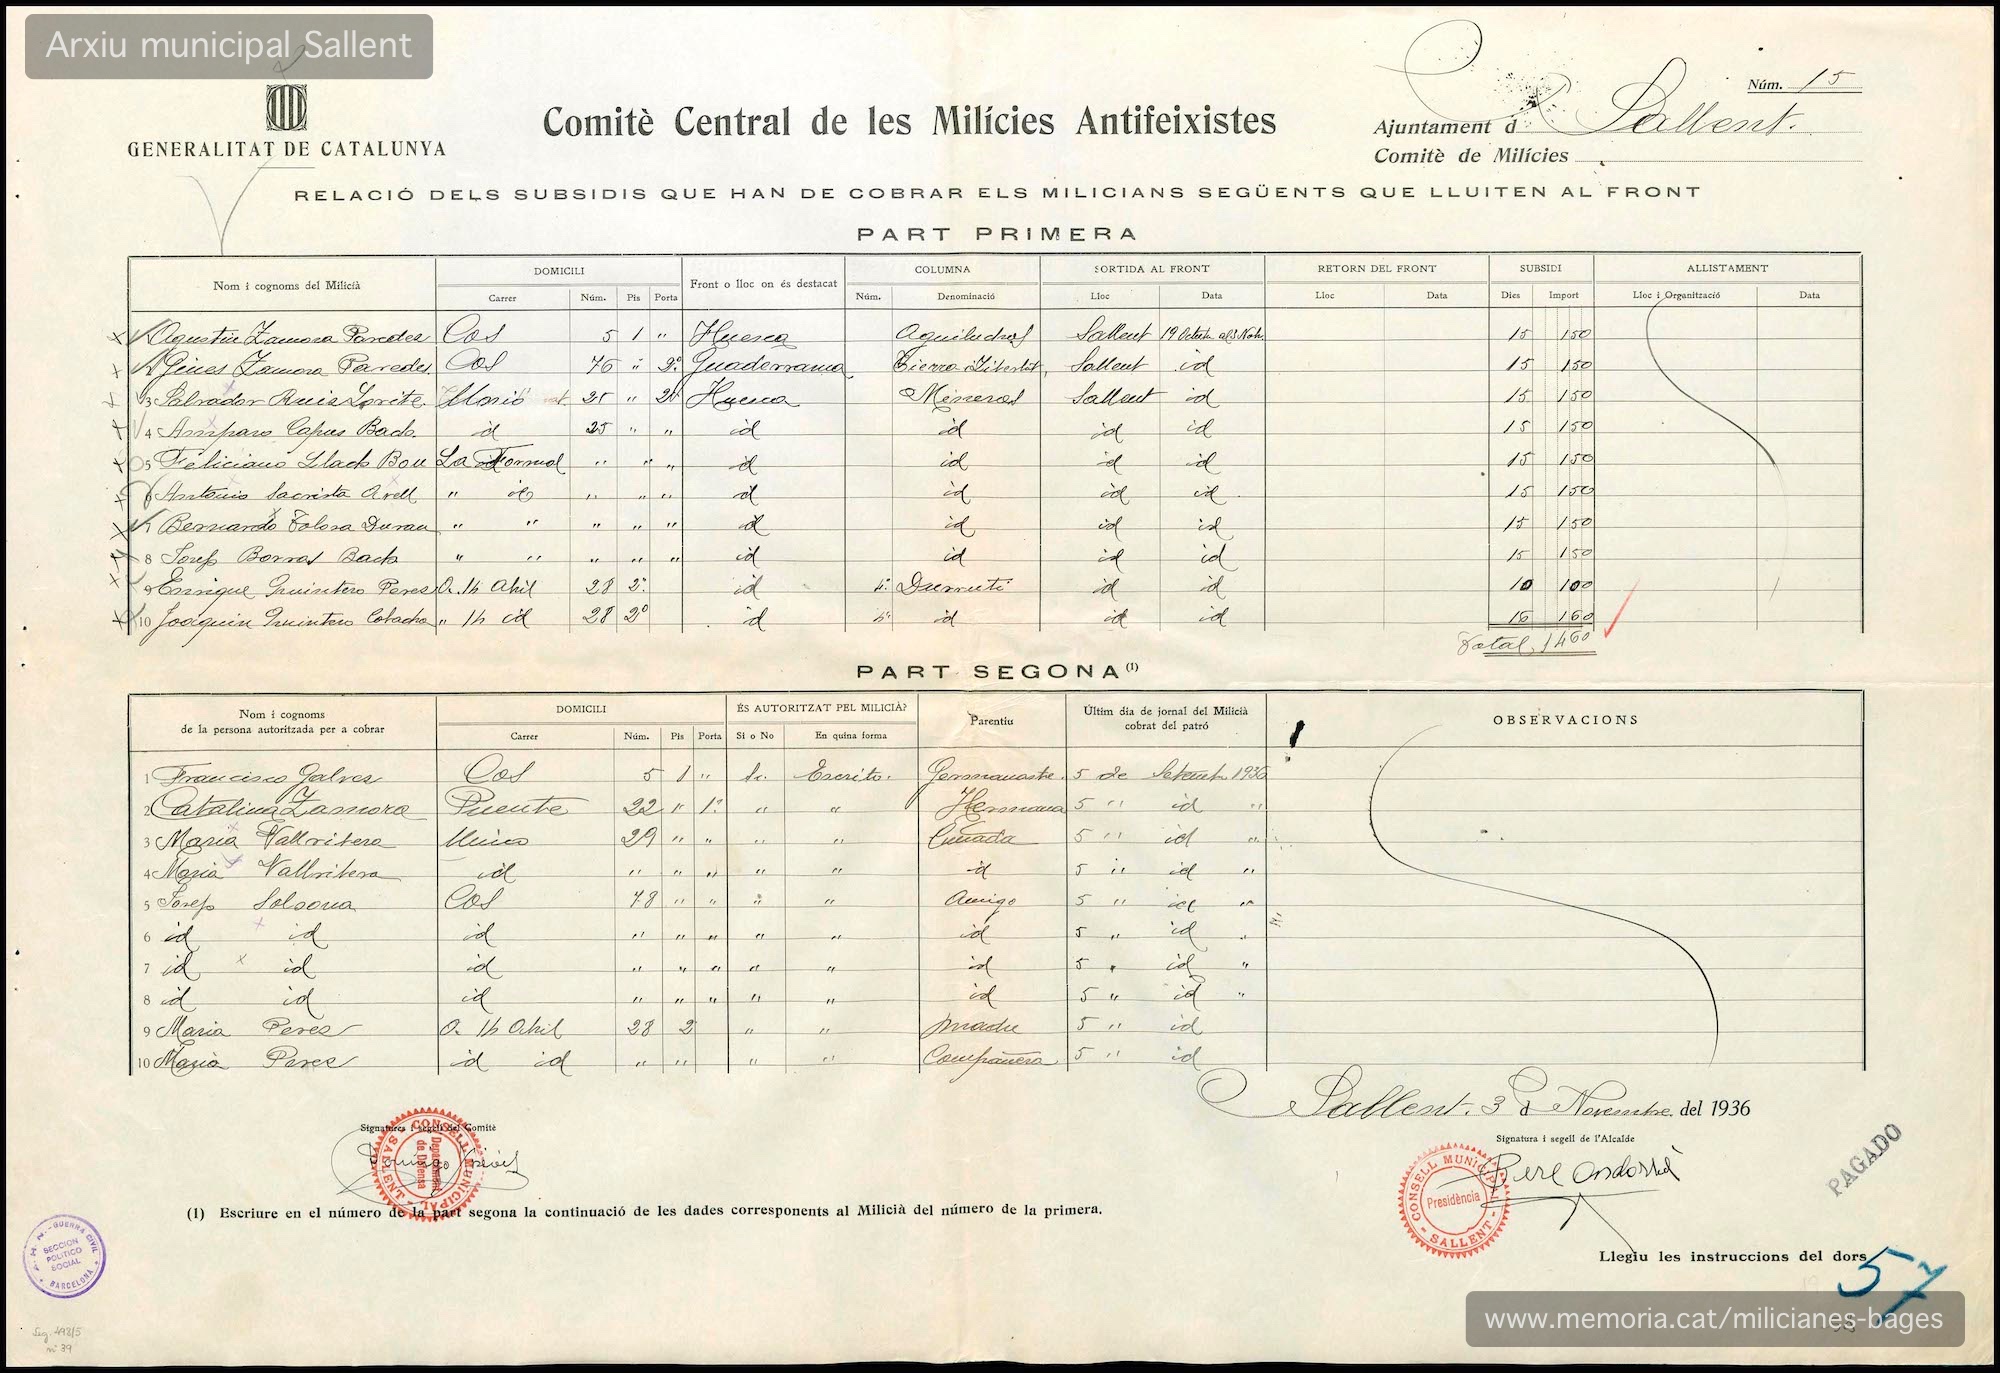 Arxiu municipal Sallent
Núm. 15
GENERALITAT DE CATALUNYA
Comitè Central de les Milícies Antifeixistes
Ajuntament d Sallent.
Comitè de Milícies
RELACIÓ DELS SUBSIDIS QUE HAN DE COBRAR ELS MILICIANS SEGÜENTS QUE LLUITEN AL FRONT
PART PRIMERA
Nom i cognoms del Milicià DOMICILI Front o lloc on és destacat COLUMNA SORTIDA AL FRONT RETORN DEL FRONT SUBSIDI ALLISTAMENT
Carrer Núm. Pis Porta Núm. Denominació Lloc Data Lloc Data Dies Import Lloc i Organització Data
Agustin Zamora Paredes Cos 5 1 " Huesca Sallent 19 15 150
Gines Zamora Paredes Cos 76 " 2º Guaderrama Tierra i Libertat, Sallent id 15 150
3 Salvador Ruis Lorite 25 " 2º Huesca Mineros Sallent id 15 150
4 Amparo Capus Bach. id 25 " " id id id id 15 150
5 Feliciano Llach Bou La Formal " " " id id id id 15 150
6 Antonio Sacrista " id " " " id id id id 15 150
7 Bernardo Tolosa Duran " " " " " id id id id 15 150
8 Josep Borras Bach " " " " " id id id id 15 150
9 Enrique Quintero Peres 14 Abril 28 2º id 4ª Durruti id id 10 100
10 Joaquin Quintero " 14 id 28 2º id 4ª id id id 16 160
Total, 1460
PART SEGONA (1)
Nom i cognoms de la persona autoritzada per a cobrar DOMICILI ÉS AUTORITZAT PEL MILICIÀ? Parentiu Últim dia de jornal del Milicià cobrat del patró OBSERVACIONS
Carrer Núm. Pis Porta Si o No En quina forma
1 Francisco Galves Cos 5 1 " Si. Escrito. Germanastre. 5 de Setembre 1936
2 Catalina Zamora Puente 22 " 1º " " Hermana 5 " id "
3 Maria Vallribera 29 " " " " Cuñada 5 " id "
4 Maria Vallribera id " " " " " id 5 " id "
5 Josep Solsona Cos 78 " " " " Amigo 5 " id "
6 id id id " " " " " id 5 " id "
7 id id id " " " " " id 5 " id "
8 id id id " " " " " id 5 " id "
9 Maria Peres 14 Abril 28 2 " " madre 5 " id
10 Maria Peres id id " " " " Compañera 5 " id
Sallent. 3 d Novembre. del 1936
Signatures i segell del Comitè
CONSELL MUNICIPAL SALLENT
Departament de Defensa
Signatura i segell de l'Alcalde
Pere Andorrà
CONSELL MUNICIPAL
Presidència
SALLENT
PAGADO
(1) Escriure en el número de la part segona la continuació de les dades corresponents al Milicià del número de la primera.
A. H. N. - GUERRA CIVIL
SECCION POLITICO SOCIAL
BARCELONA
Llegiu les instruccions del dors
57
Seg. 492/5
nº 39
www.memoria.cat/milicianes-bages